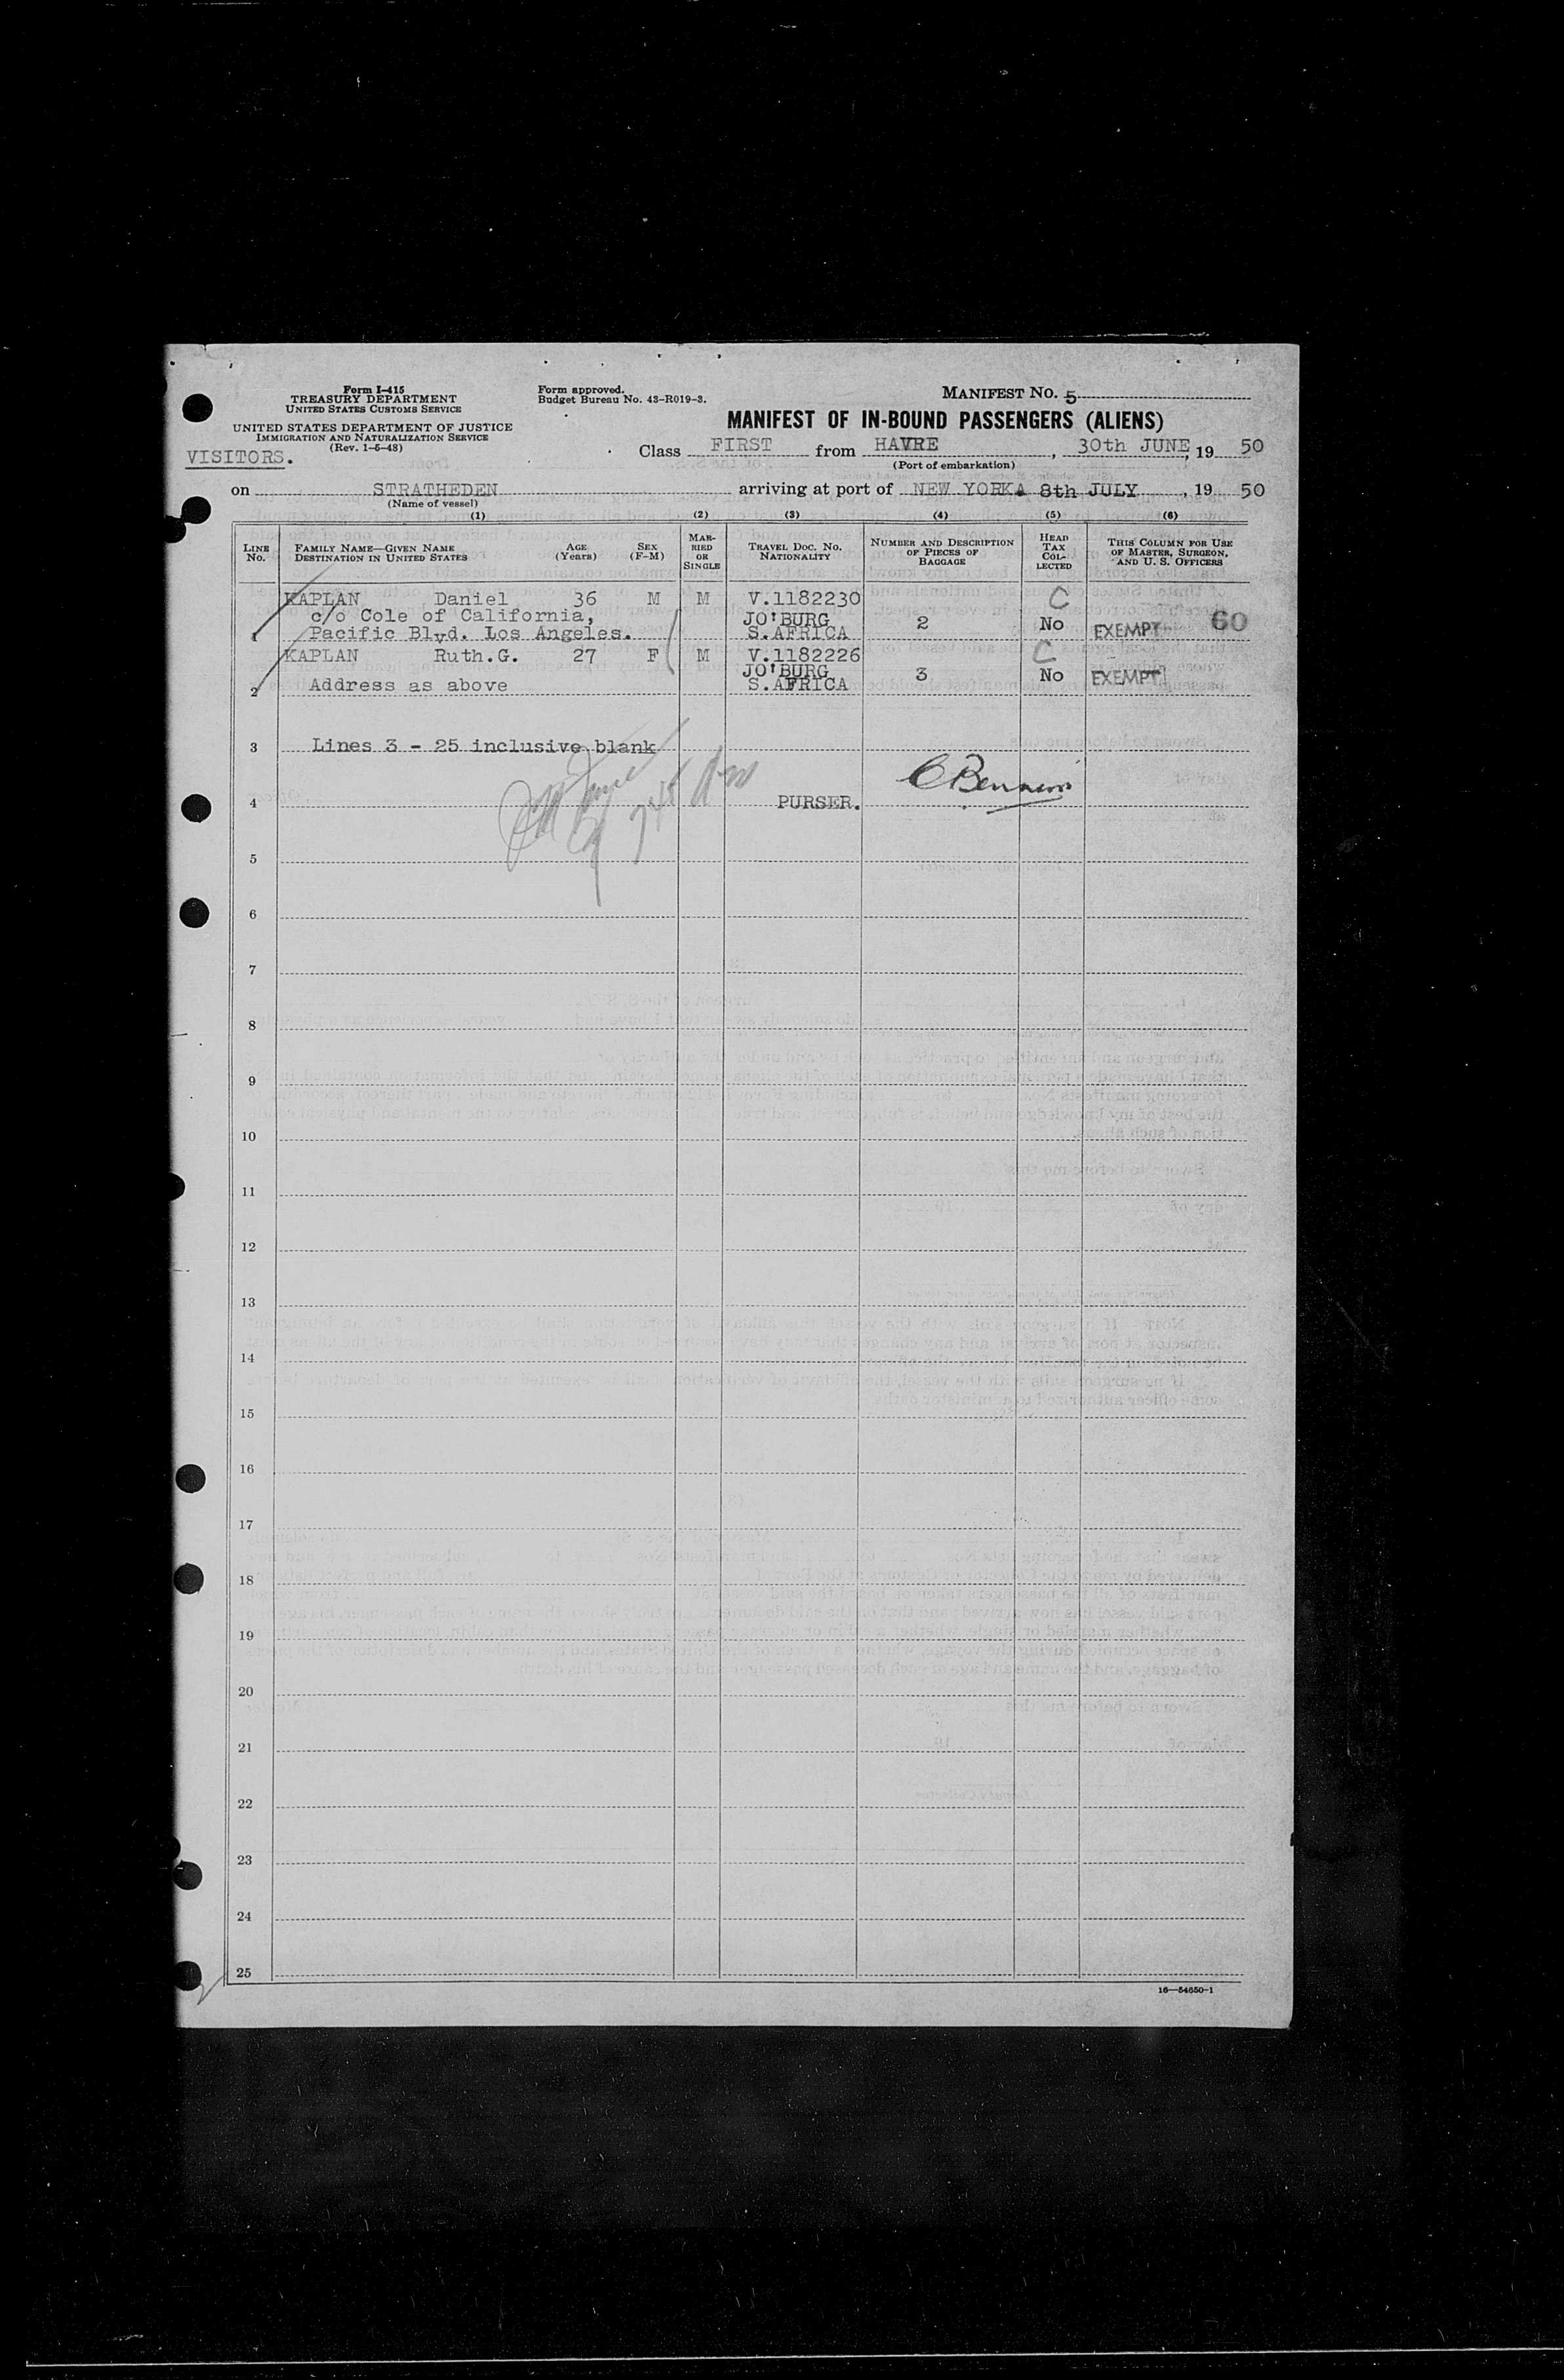 Form I-415
TREASURY DEPARTMENT
UNITED STATES CUSTOMS SERVICE
UNITED STATES DEPARTMENT OF JUSTICE
IMMIGRATION AND NATURALIZATION SERVICE
(Rev. 1-6-48)
VISITORS.
Form approved.
Budget Bureau No. 43-R019-3.
MANIFEST No. 5
MANIFEST OF IN-BOUND PASSENGERS (ALIENS)
Class FIRST from HAVRE, 30th JUNE, 19 50
(Port of embarkation)
on STRATHEDEN arriving at port of NEW YORK. 8th JULY, 19 50
(Name of vessel)
(1) (2) (3) (4) (5) (6)
LINE No. FAMILY NAME—GIVEN NAME DESTINATION IN UNITED STATES AGE (Years) SEX (F-M) MARRIED OR SINGLE TRAVEL DOC. NO. NATIONALITY NUMBER AND DESCRIPTION OF PIECES OF BAGGAGE HEAD TAX COLLECTED THIS COLUMN FOR USE OF MASTER, SURGEON, AND U. S. OFFICERS
KAPLAN Daniel 36 M M V.1182230 C
c/o Cole of California, JO'BURG 2 No EXEMPT 60
1 Pacific Blvd. Los Angeles. S.AFRICA
KAPLAN Ruth.G. 27 F M V.1182226 C
JO'BURG 3 No EXEMPT
2 Address as above S.AFRICA
3 Lines 3 - 25 inclusive blank
4 PURSER.
5
6
7
8
9
10
11
12
13
14
15
16
17
18
19
20
21
22
23
24
25
16—54650-1